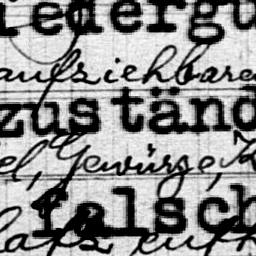 iedergu
aufziehbare
zuständ
el, Gewürze, K
falsch